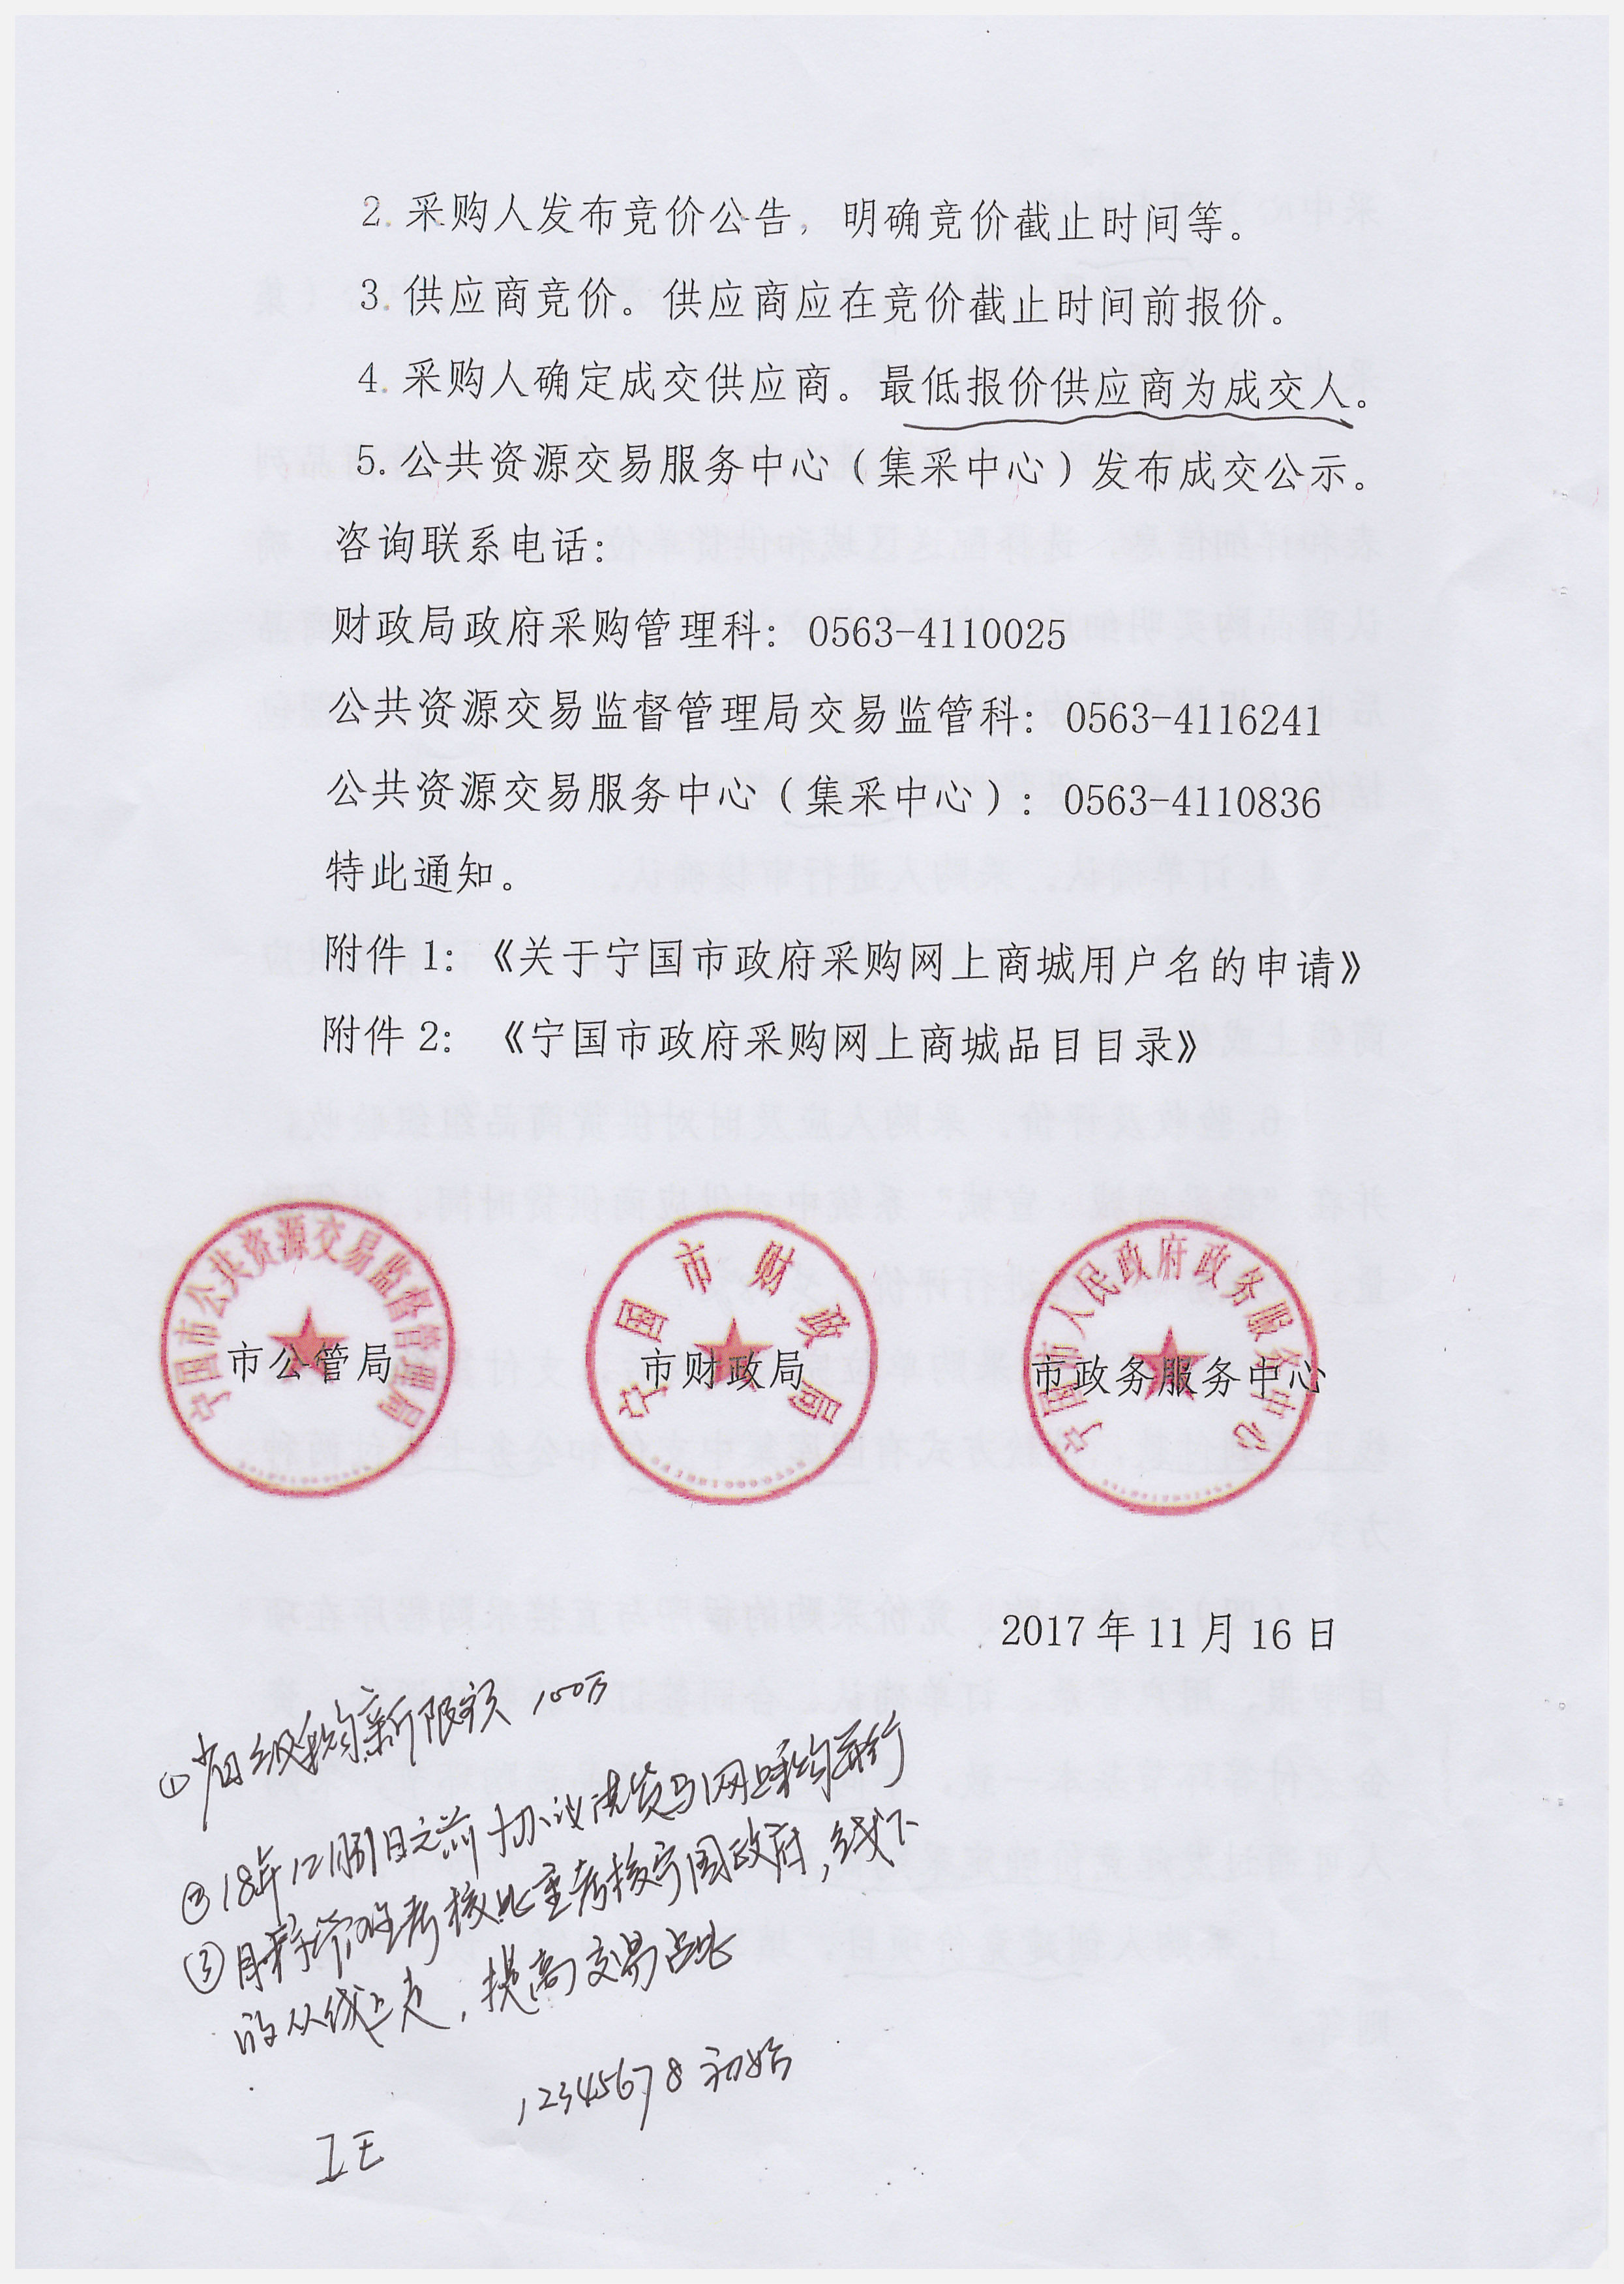 2.采购人发布竞价公告，明确竞价截止时间等。
3.供应商竞价。供应商应在竞价截止时间前报价。
4.采购人确定成交供应商。最低报价供应商为成交人。
5.公共资源交易服务中心（集采中心）发布成交公示。
咨询联系电话：
财政局政府采购管理科：0563-4110025
公共资源交易监督管理局交易监管科：0563-4116241
公共资源交易服务中心（集采中心）：0563-4110836
特此通知。
附件1：《关于宁国市政府采购网上商城用户名的申请》
附件2：《宁国市政府采购网上商城品目目录》
宁国市公共资源交易监督管理局
市公管局
宁国市财政局
市财政局
宁国市人民政府政务服务中心
市政务服务中心
2017年11月16日
① 级采购新限额 100万
② 18年12月31日之前 协议供货与网上采购并行
③ 考核 考核宁国政府，线下
的从线上走，提高交易占比
12345678 初始
IE